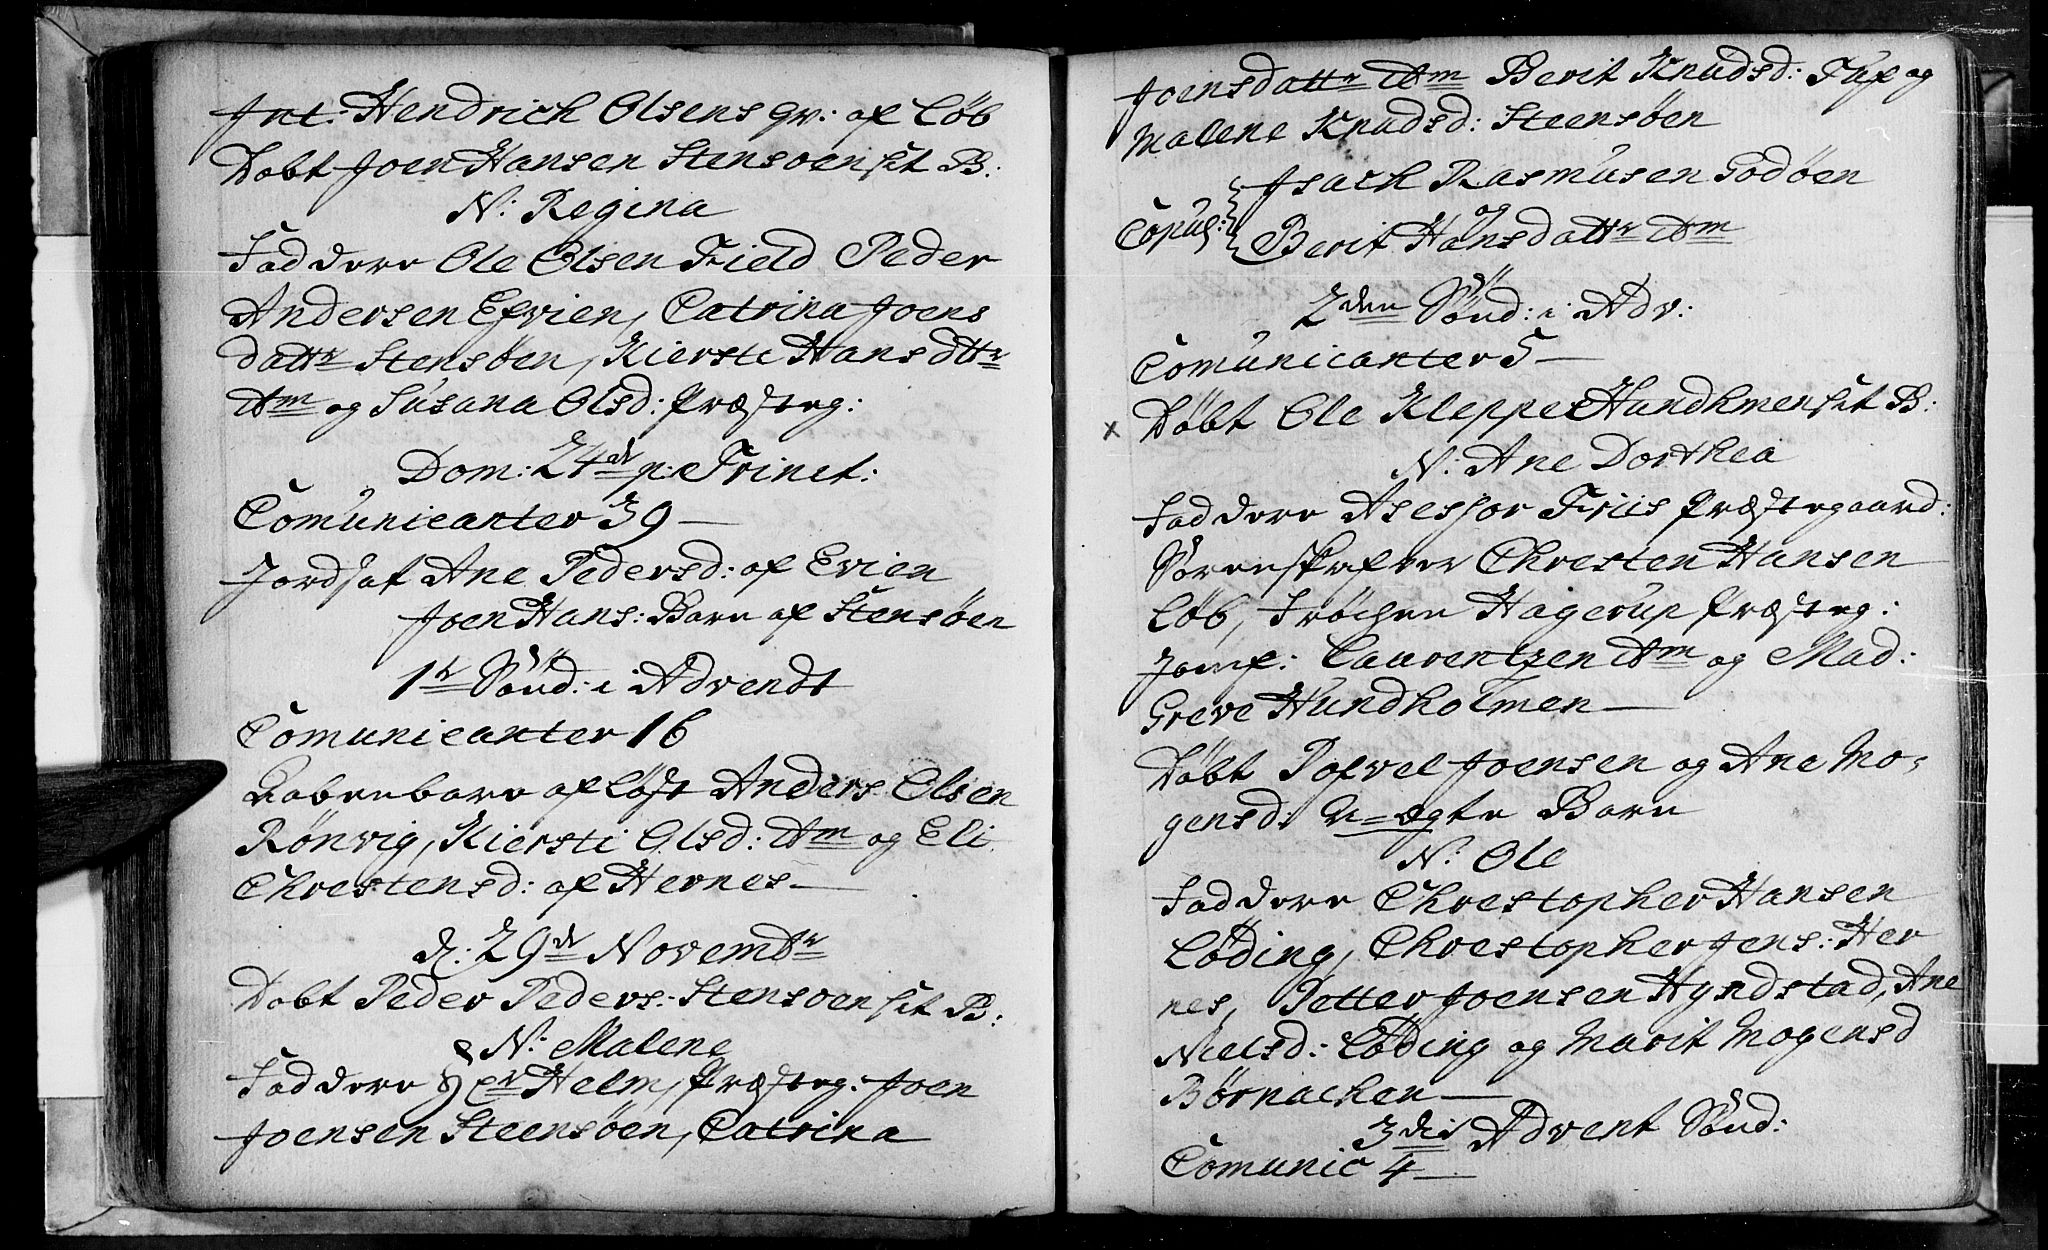 Int: Hendrich Olsens qv: af Löb
Döbt Joen Hansen Stensöen sit B:
N: Regina
Faddere Ole Olsen Field Peder
Andersen Efvien, Catrina Joens
dattr Stensöen, Kiersti Hans Dttr
Dm og Susana Olsd: Præsteg:
Dom: 24de p: Trinet:
Comunicanter 39 —
Jordsat Ane Pedersd: af Evien
Joen Hans: Barn af Stensöen
1te Sönd: i Advendt
Comunicanter 16
Aabenbare afløst Anders Olsen
Rönvig, Kiersti Olsd: Dm og Eli
Chrestensd: af Hernes —
d: 29de Novembr
Döbt Peder Peders: Stensöen sit B:
N: Malene
Faddere Hr Helm, Præsteg: Joen
Joensen Steensöen, Catrina
Joensdattr Dm Berit Knudsd: og
Malene Knudsd: Steensöen
Isach Rasmusen Godöen
og
Copul: Berit Hansdattr Dm
2den Sönd: i Adv:
Comunicanter 5 —
x Döbt Ole Kleppe Hundhmen sit B:
N: Ane Dorthea
Faddere Asessor Friis Præstegaard:
Sorenskrifver Chresten Hansen
Löb, Fröchen Hagerup Præsteg:
Jomf: Laurentzen Dm og Mad:
Greve Hundholmen —
Döbt Pofvel Joensen og Ane Mo-
gensd: U-ægte Barn
N: Ole
Faddere Chrestopher Hansen
Löding, Chrestopher Jens: Her
nes, Petter Joensen Hyndstad, Ane
Nielsd: Löding og Marit Mogensd
Börnachen —
3die Advent Sönd:
Comunic 4 —